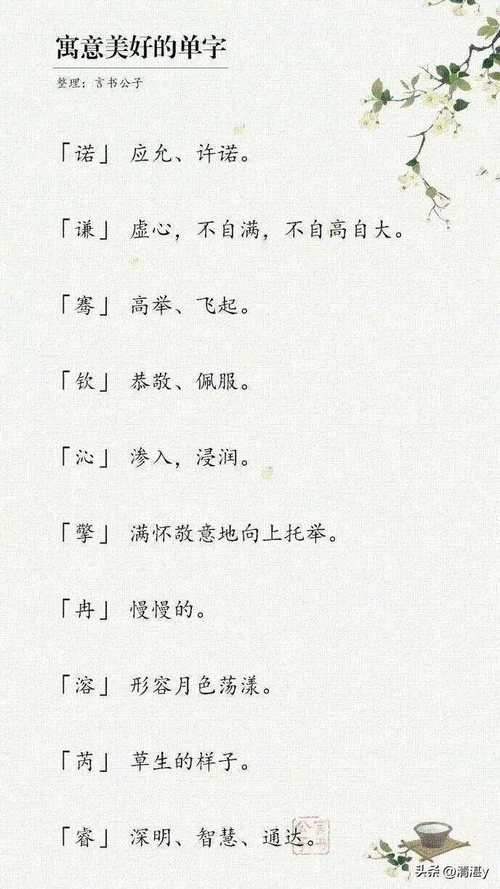 寓意美好的单字
整理：言书公子
「诺」 应允、许诺。
「谦」 虚心，不自满，不自高自大。
「骞」 高举、飞起。
「钦」 恭敬、佩服。
「沁」 渗入，浸润。
「擎」 满怀敬意地向上托举。
「冉」 慢慢的。
「溶」 形容月色荡漾。
「芮」 草生的样子。
「睿」 深明、智慧、通达。
头条 @漘湛y